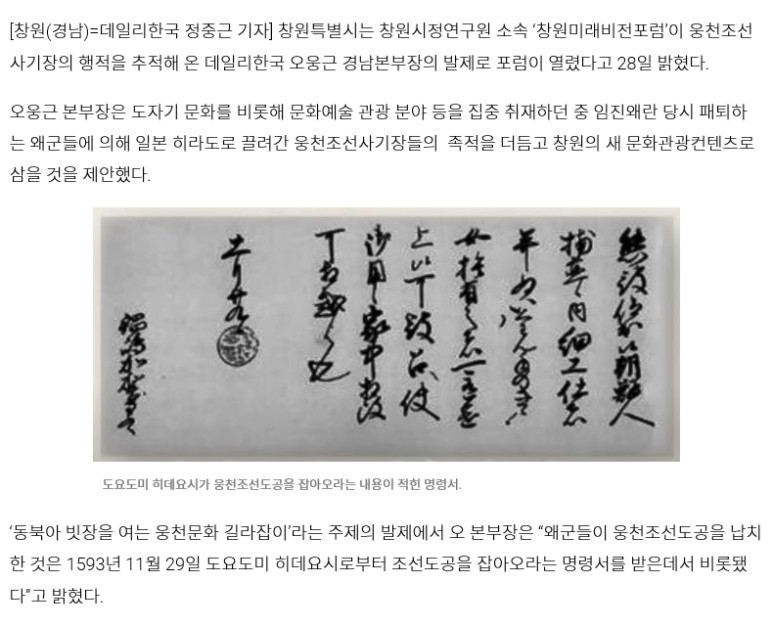 [창원(경남)=데일리한국 정중근 기자] 창원특별시는 창원시정연구원 소속 ‘창원미래비전포럼’이 웅천조선
사기장의 행적을 추적해 온 데일리한국 오웅근 경남본부장의 발제로 포럼이 열렸다고 28일 밝혔다.
오웅근 본부장은 도자기 문화를 비롯해 문화예술 관광 분야 등을 집중 취재하던 중 임진왜란 당시 패퇴하
는 왜군들에 의해 일본 히라도로 끌려간 웅천조선사기장들의 족적을 더듬고 창원의 새 문화관광컨텐츠로
삼을 것을 제안했다.
朝鮮人
捕置候内細工仕者
女
上候可被召仕
御用候家中相改
十一月廿九日
도요도미 히데요시가 웅천조선도공을 잡아오라는 내용이 적힌 명령서.
‘동북아 빗장을 여는 웅천문화 길라잡이’라는 주제의 발제에서 오 본부장은 “왜군들이 웅천조선도공을 납치
한 것은 1593년 11월 29일 도요도미 히데요시로부터 조선도공을 잡아오라는 명령서를 받은데서 비롯됐
다”고 밝혔다.